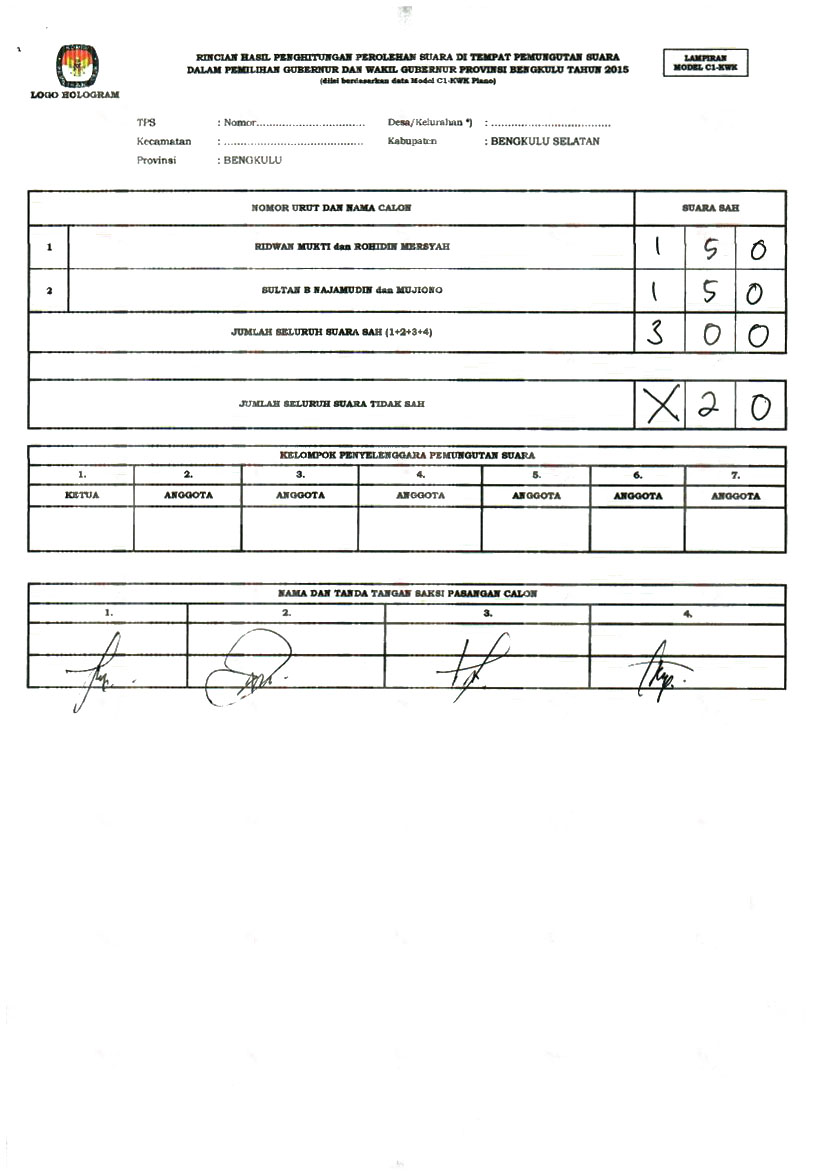 RINCIAN HASIL PENGHITUNGAN PEROLEHAN SUARA DI TEMPAT PEMUNGUTAN SUARA
DALAM PEMILIHAN GUBERNUR DAN WAKIL GUBERNUR PROVINSI BENGKULU TAHUN 2015
(diisi berdasarkan data Model C1-KWK Plano)
LAMPIRAN
MODEL C1-KWK
LOGO HOLOGRAM
TPS : Nomor................................ Desa/Kelurahan *) : ....................................
Kecamatan : .......................................... Kabupaten : BENGKULU SELATAN
Provinsi : BENGKULU
NOMOR URUT DAN NAMA CALON SUARA SAH
1 RIDWAN MUKTI dan ROHIDIN MERSYAH 1 5 0
2 SULTAN B NAJAMUDIN dan MUJIONO 1 5 0
JUMLAH SELURUH SUARA SAH (1+2+3+4) 3 0 0
JUMLAH SELURUH SUARA TIDAK SAH X 2 0
KELOMPOK PENYELENGGARA PEMUNGUTAN SUARA
1. 2. 3. 4. 5. 6. 7.
KETUA ANGGOTA ANGGOTA ANGGOTA ANGGOTA ANGGOTA ANGGOTA
NAMA DAN TANDA TANGAN SAKSI PASANGAN CALON
1. 2. 3. 4.